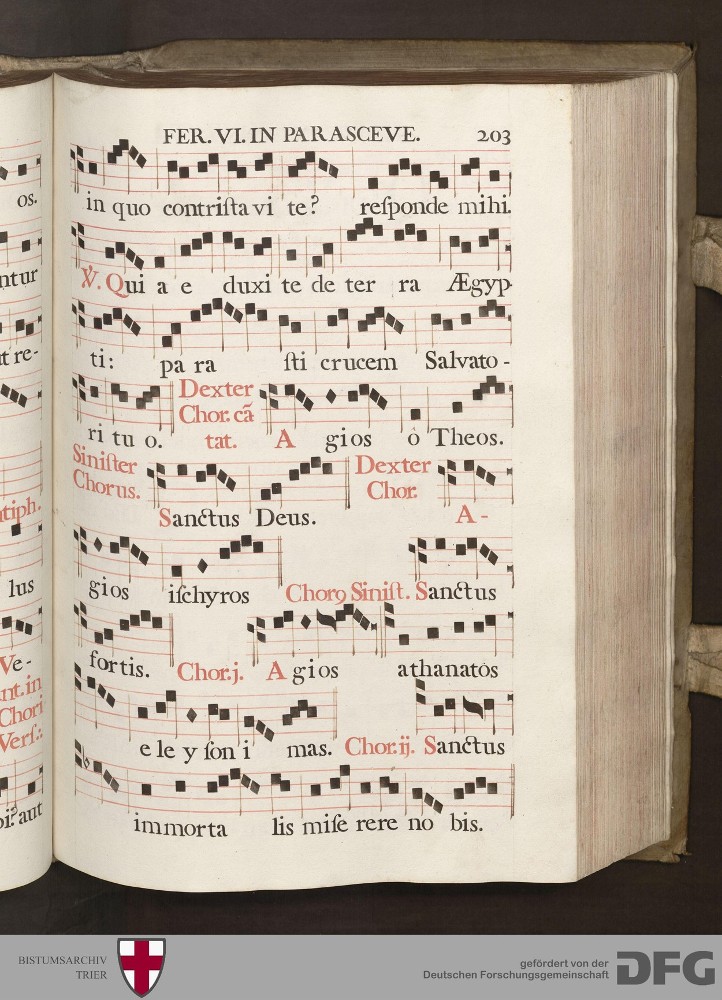 os.
ntur
ut re-
tiph.
lus
Ve-
nt.in
Chori
Verſ:.
oi? aut
FER. VI. IN PARASCEVE. 203
in quo contriſta vi te? reſponde mihi.
℣. Qui a e duxi te de ter ra Ægyp-
ti: pa ra ſti crucem Salvato -
ri tu o. Dexter Chor. cã tat. A gios ò Theos.
Siniſter Chorus. Sanctus Deus. Dexter Chor. A -
gios iſchyros Chorꝯ Siniſt. Sanctus
fortis. Chor. j. A gios athanatòs
e le y ſon i mas. Chor. ij. Sanctus
immorta lis miſe rere no bis.
BISTUMSARCHIV
TRIER
gefördert von der
Deutschen Forschungsgemeinschaft
DFG